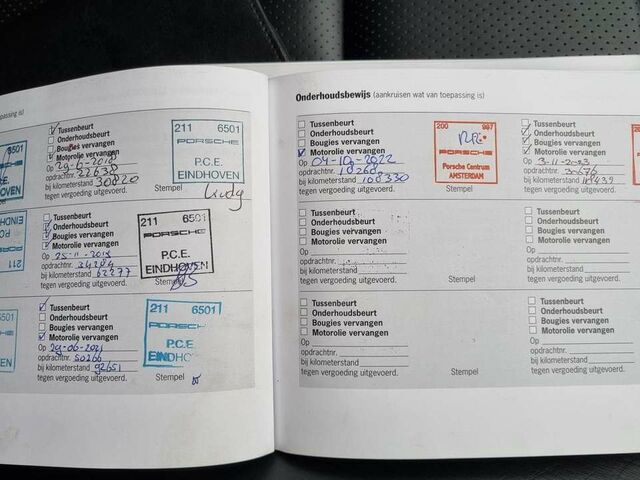 passing is)
Tussenbeurt
Onderhoudsbeurt
Bougies vervangen
Motorolie vervangen
Op 29-6-2018
opdrachtnr. 22638
bij kilometerstand 30820
tegen vergoeding uitgevoerd.
211 6501
PORSCHE
P.C.E.
EINDHOVEN
Stempel
HOVEN
Tussenbeurt
Onderhoudsbeurt
Bougies vervangen
Motorolie vervangen
Op 25-11-2019
opdrachtnr. 34284
bij kilometerstand 62277
tegen vergoeding uitgevoerd.
211 6501
PORSCHE
P.C.E.
EINDHOVEN
Stempel
EINDH
211
Tussenbeurt
Onderhoudsbeurt
Bougies vervangen
Motorolie vervangen
Op 29-06-2021
opdrachtnr. 50266
bij kilometerstand 92651
tegen vergoeding uitgevoerd.
211 6501
PORSCH
P.C.E
EINDHO
Stempel
6501
VEN
Onderhoudsbewijs (aankruisen wat van toepassing is)
Tussenbeurt
Onderhoudsbeurt
Bougies vervangen
Motorolie vervangen
Op 04-10-2022
opdrachtnr. 10268
bij kilometerstand 108330
tegen vergoeding uitgevoerd.
200 997
PORSCHE
Porsche Centrum
AMSTERDAM
Stempel
Tussenbeurt
Onderhoudsbeurt
Bougies vervangen
Motorolie vervangen
Op 3-11-2023
opdrachtnr. 30676
bij kilometerstand
tegen vergoeding uitgevoerd.
200
Tussenbeurt
Onderhoudsbeurt
Bougies vervangen
Motorolie vervangen
Op
opdrachtnr.
bij kilometerstand
tegen vergoeding uitgevoerd.
Stempel
Tussenbeurt
Onderhoudsbeurt
Bougies vervangen
Motorolie vervangen
Op
opdrachtnr.
bij kilometerstand
tegen vergoeding uitgevoerd.
Tussenbeurt
Onderhoudsbeurt
Bougies vervangen
Motorolie vervangen
Op
opdrachtnr.
bij kilometerstand
tegen vergoeding uitgevoerd.
Stempel
Tussenbeurt
Onderhoudsbeurt
Bougies vervangen
Motorolie vervangen
Op
opdrachtnr.
bij kilometerstand
tegen vergoeding uitgevoerd.